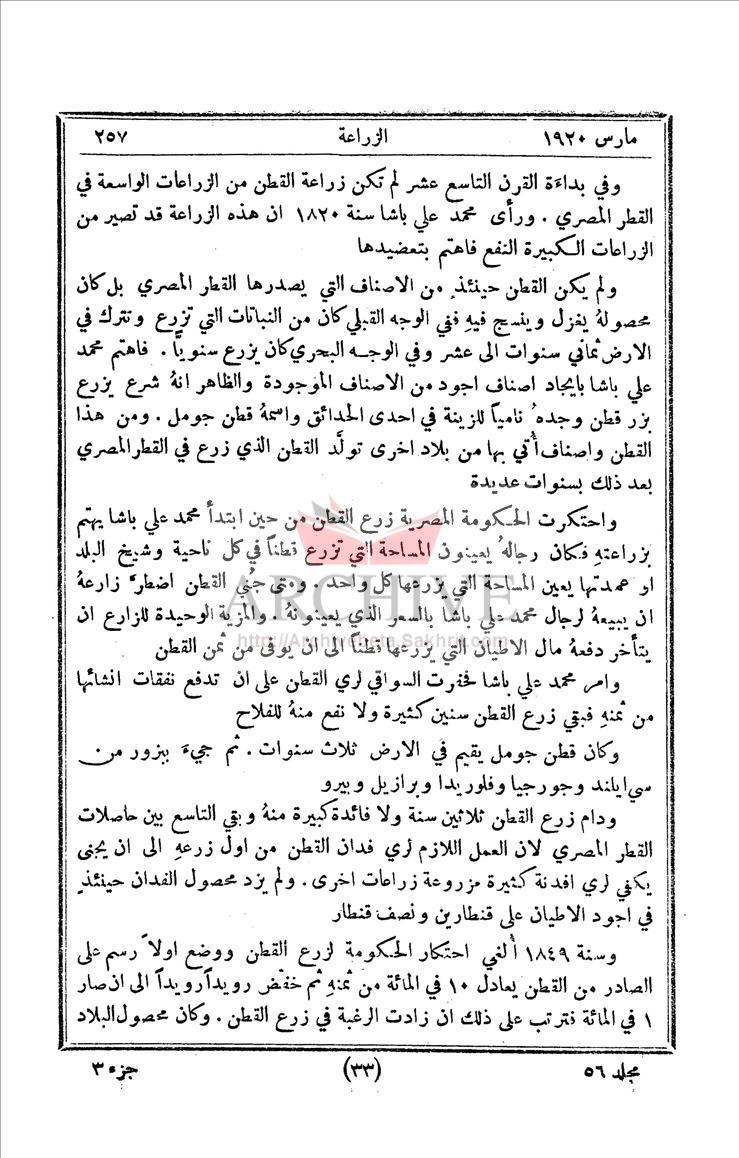 مارس ١٩٢٠ الزراعة ٢٥٧
وفي بداءة القرن التاسع عشر لم تكن زراعة القطن من الزراعات الواسعة في
القطر المصري . ورأى محمد علي باشا سنة ١٨٢٠ ان هذه الزراعة قد تصير من
الزراعات الكبيرة النفع فاهتم بتعضيدها
ولم يكن القطن حينئذٍ من الاصناف التي يصدرها القطر المصري بل كان
محصولهُ يغزل وينسج فيهِ ففي الوجه القبلي كان من النباتات التي تزرع وتترك في
الارض ثماني سنوات الى عشر وفي الوجه البحري كان يزرع سنويًّا . فاهتم محمد
علي باشا بايجاد اصناف اجود من الاصناف الموجودة والظاهر انهُ شرع يزرع
بزر قطن وجدهُ نامياً للزينة في احدى الحدائق واسمهُ قطن جومل . ومن هذا
القطن واصناف أُتي بها من بلاد اخرى تولَّد القطن الذي زرع في القطر المصري
بعد ذلك بسنوات عديدة
واحتكرت الحكومة المصرية زرع القطن من حين ابتدأ محمد علي باشا يهتم
بزراعتهِ فكان رجالهُ يعينون المساحة التي تزرع قطناً في كل ناحية وشيخ البلد
او عمدتها يعين المساحة التي يزرعها كل واحد . ومتى جُني القطن اضطرَّ زارعهُ
ان يبيعهُ لرجال محمد علي باشا بالسعر الذي يعينونهُ . والمزية الوحيدة للزارع ان
يتأخر دفعهُ مال الاطيان التي يزرعها قطناً الى ان يوفى من ثمن القطن
وامر محمد علي باشا فحفرت السواقي لري القطن على ان تدفع نفقات انشائها
من ثمنهِ فبقي زرع القطن سنين كثيرة ولا نفع منهُ للفلاح
وكان قطن جومل يقيم في الارض ثلاث سنوات . ثم جيءَ ببزور من
سي ايلند وجورجيا وفلوريدا وبرازيل وبيرو
ودام زرع القطن ثلاثين سنة ولا فائدة كبيرة منهُ وبقي التاسع بين حاصلات
القطر المصري لان العمل اللازم لري فدان القطن من اول زرعهِ الى ان يجنى
يكفي لري افدنة كثيرة مزروعة زراعات اخرى . ولم يزد محصول الفدان حينئذٍ
في اجود الاطيان على قنطارين ونصف قنطار
وسنة ١٨٤٩ أُلغي احتكار الحكومة لزرع القطن ووضع اولاً رسم على
الصادر من القطن يعادل ١٠ في المائة من ثمنهِ ثم خفض رويداً رويداً الى ان صار
١ في المائة فترتب على ذلك ان زادت الرغبة في زرع القطن . وكان محصول البلاد
مجلد ٥٦ (٣٣) جزء ٣
ARCHIVE
http://Archivebeta.Sakhrit.com